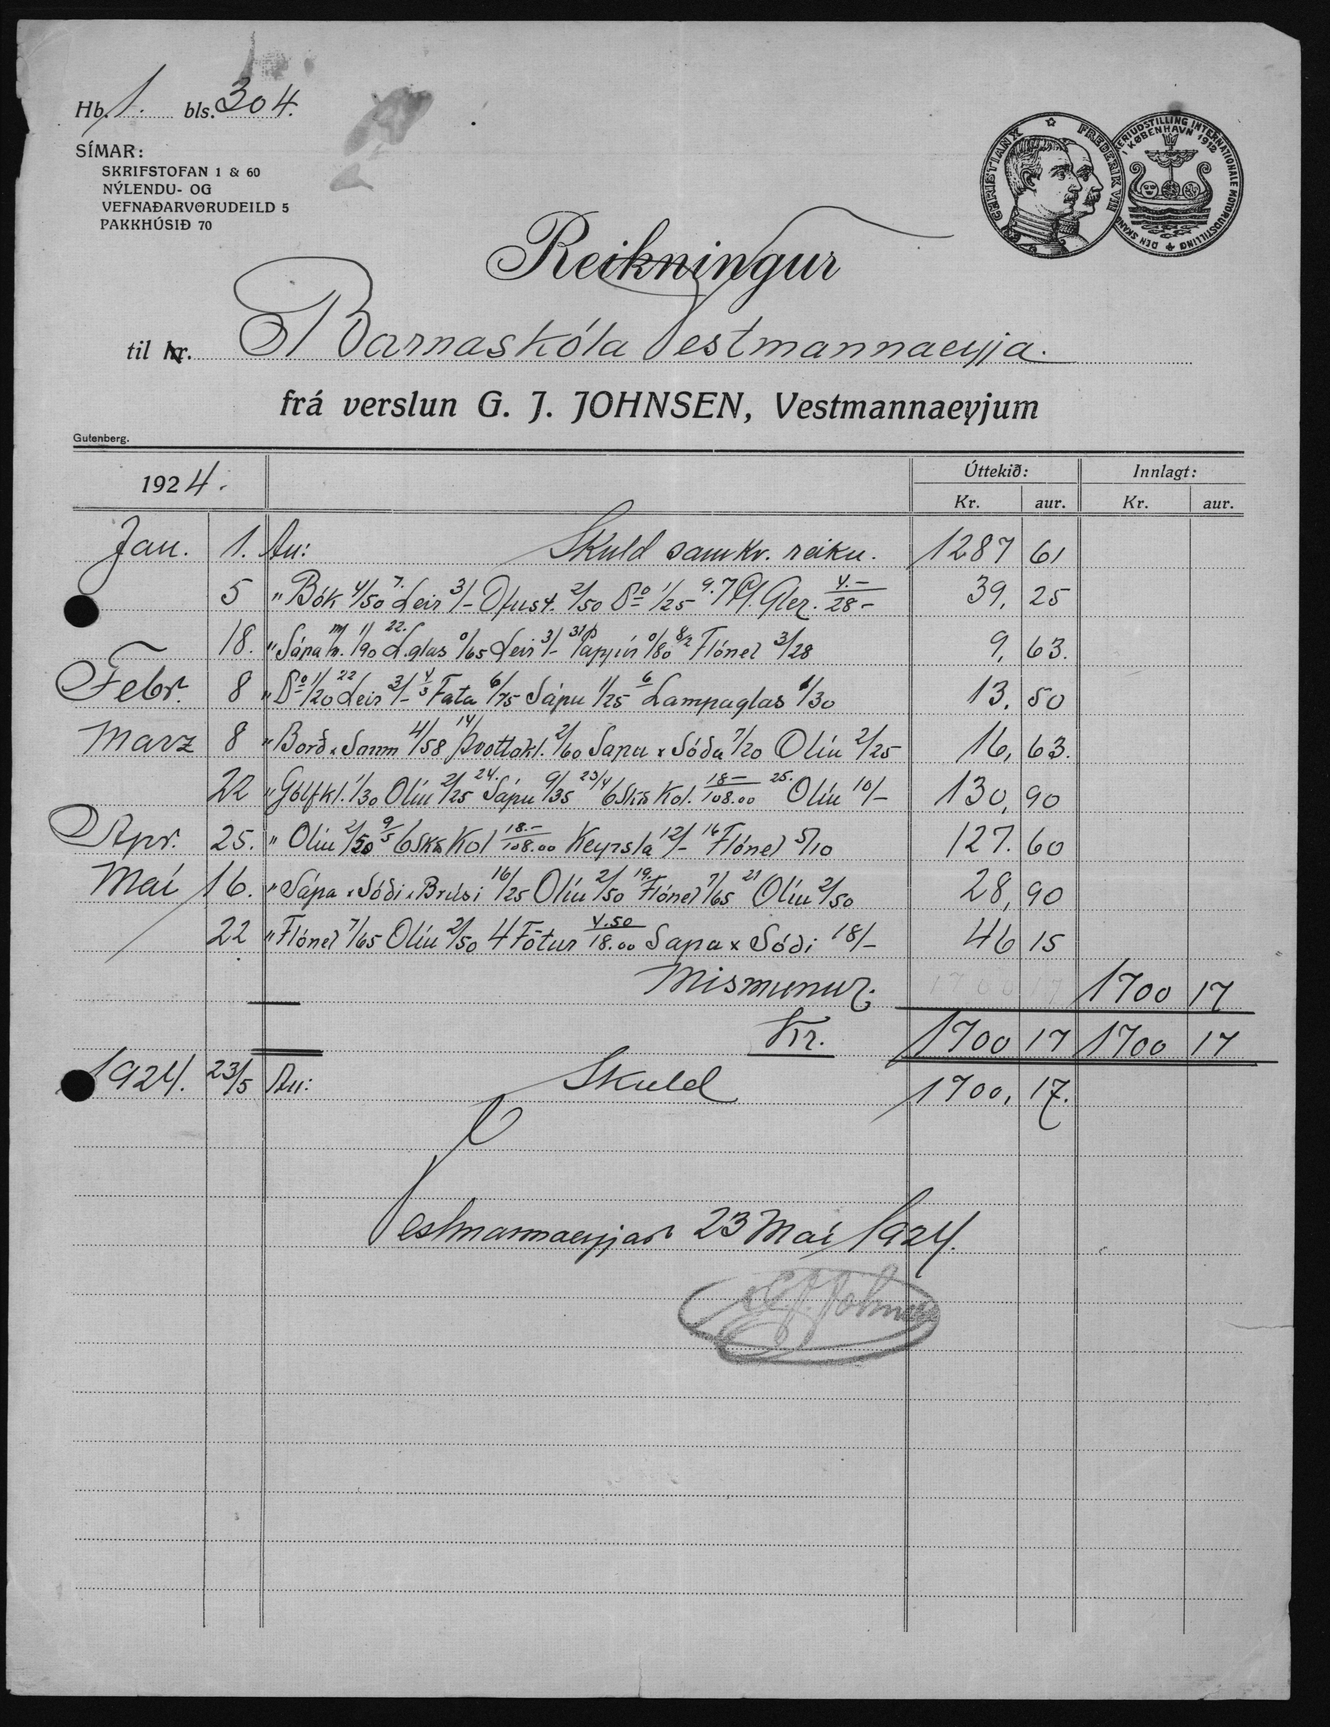 Hb. 1. bls. 304.
SÍMAR:
SKRIFSTOFAN 1 & 60
NÝLENDU- OG
VEFNAÐARVØRUDEILD 5
PAKKHÚSIÐ 70
CHRISTIAN X ☆ FREDERIK VIII
INDUSTRIUDSTILLING INTERNATIONALE MOTORUDSTILLING
I KØBENHAVN 1912
DEN SKAND
Reikningur
til hr. Barnaskóla Vestmannaeyja.
frá verslun G. J. JOHNSEN, Vestmannaeyjum
Gutenberg.
1924. Úttekið: Innlagt:
Kr. aur. Kr. aur.
Jan. 1. An: Skuld samkv. reikn. 1287 61
5 " Bók 4/50 7. Leir 3/- Ofnst. 2/50 Do 1/25 9. 7 Pl. Gler. 4.-/28- 39, 25
18. " Sápa 1/90 22. L.glas 0/65 Leir 3/- Pappír 0/80 8/2 Flónel 3/28 9, 63.
Febr. 8 " Do 1/20 22 Leir 3/- 4/3 Fata 6/75 Sápu 1/25 6 Lampaglas 1/30 13, 50
Marz 8 " Borð & Saum 4/58 14/ Þvottakl. 2/60 Sapu & Sóda 7/20 Olíu 2/25 16, 63.
22 " Gólfkl. 1/30 Olíu 2/25 24. Sápu 9/35 23/4 6 Skb Kol. 18-/108.00 25. Olíu 10/- 130, 90
Apr. 25. " Olíu 2/50 9/5 6 Skb Kol 18.-/108.00 Keyrsla 12/- 16 Flónel 5/10 127. 60
Maí 16. " Sápa & Sódi & Brúsi 16/25 Olíu 2/50 19. Flónel 7/65 21 Olíu 2/50 28, 90
22 " Flónel 7/65 Olíu 2/50 4 Fötur 4.50/18.00 Sapa & Sódi 18/- 46 15
Mismunur. 1700 17
Kr. 1700 17 1700 17
1924. 23/5 An: Skuld 1700, 17.
Vestmannaeyjar 23 Maí 1924.
G. J. Johnsen